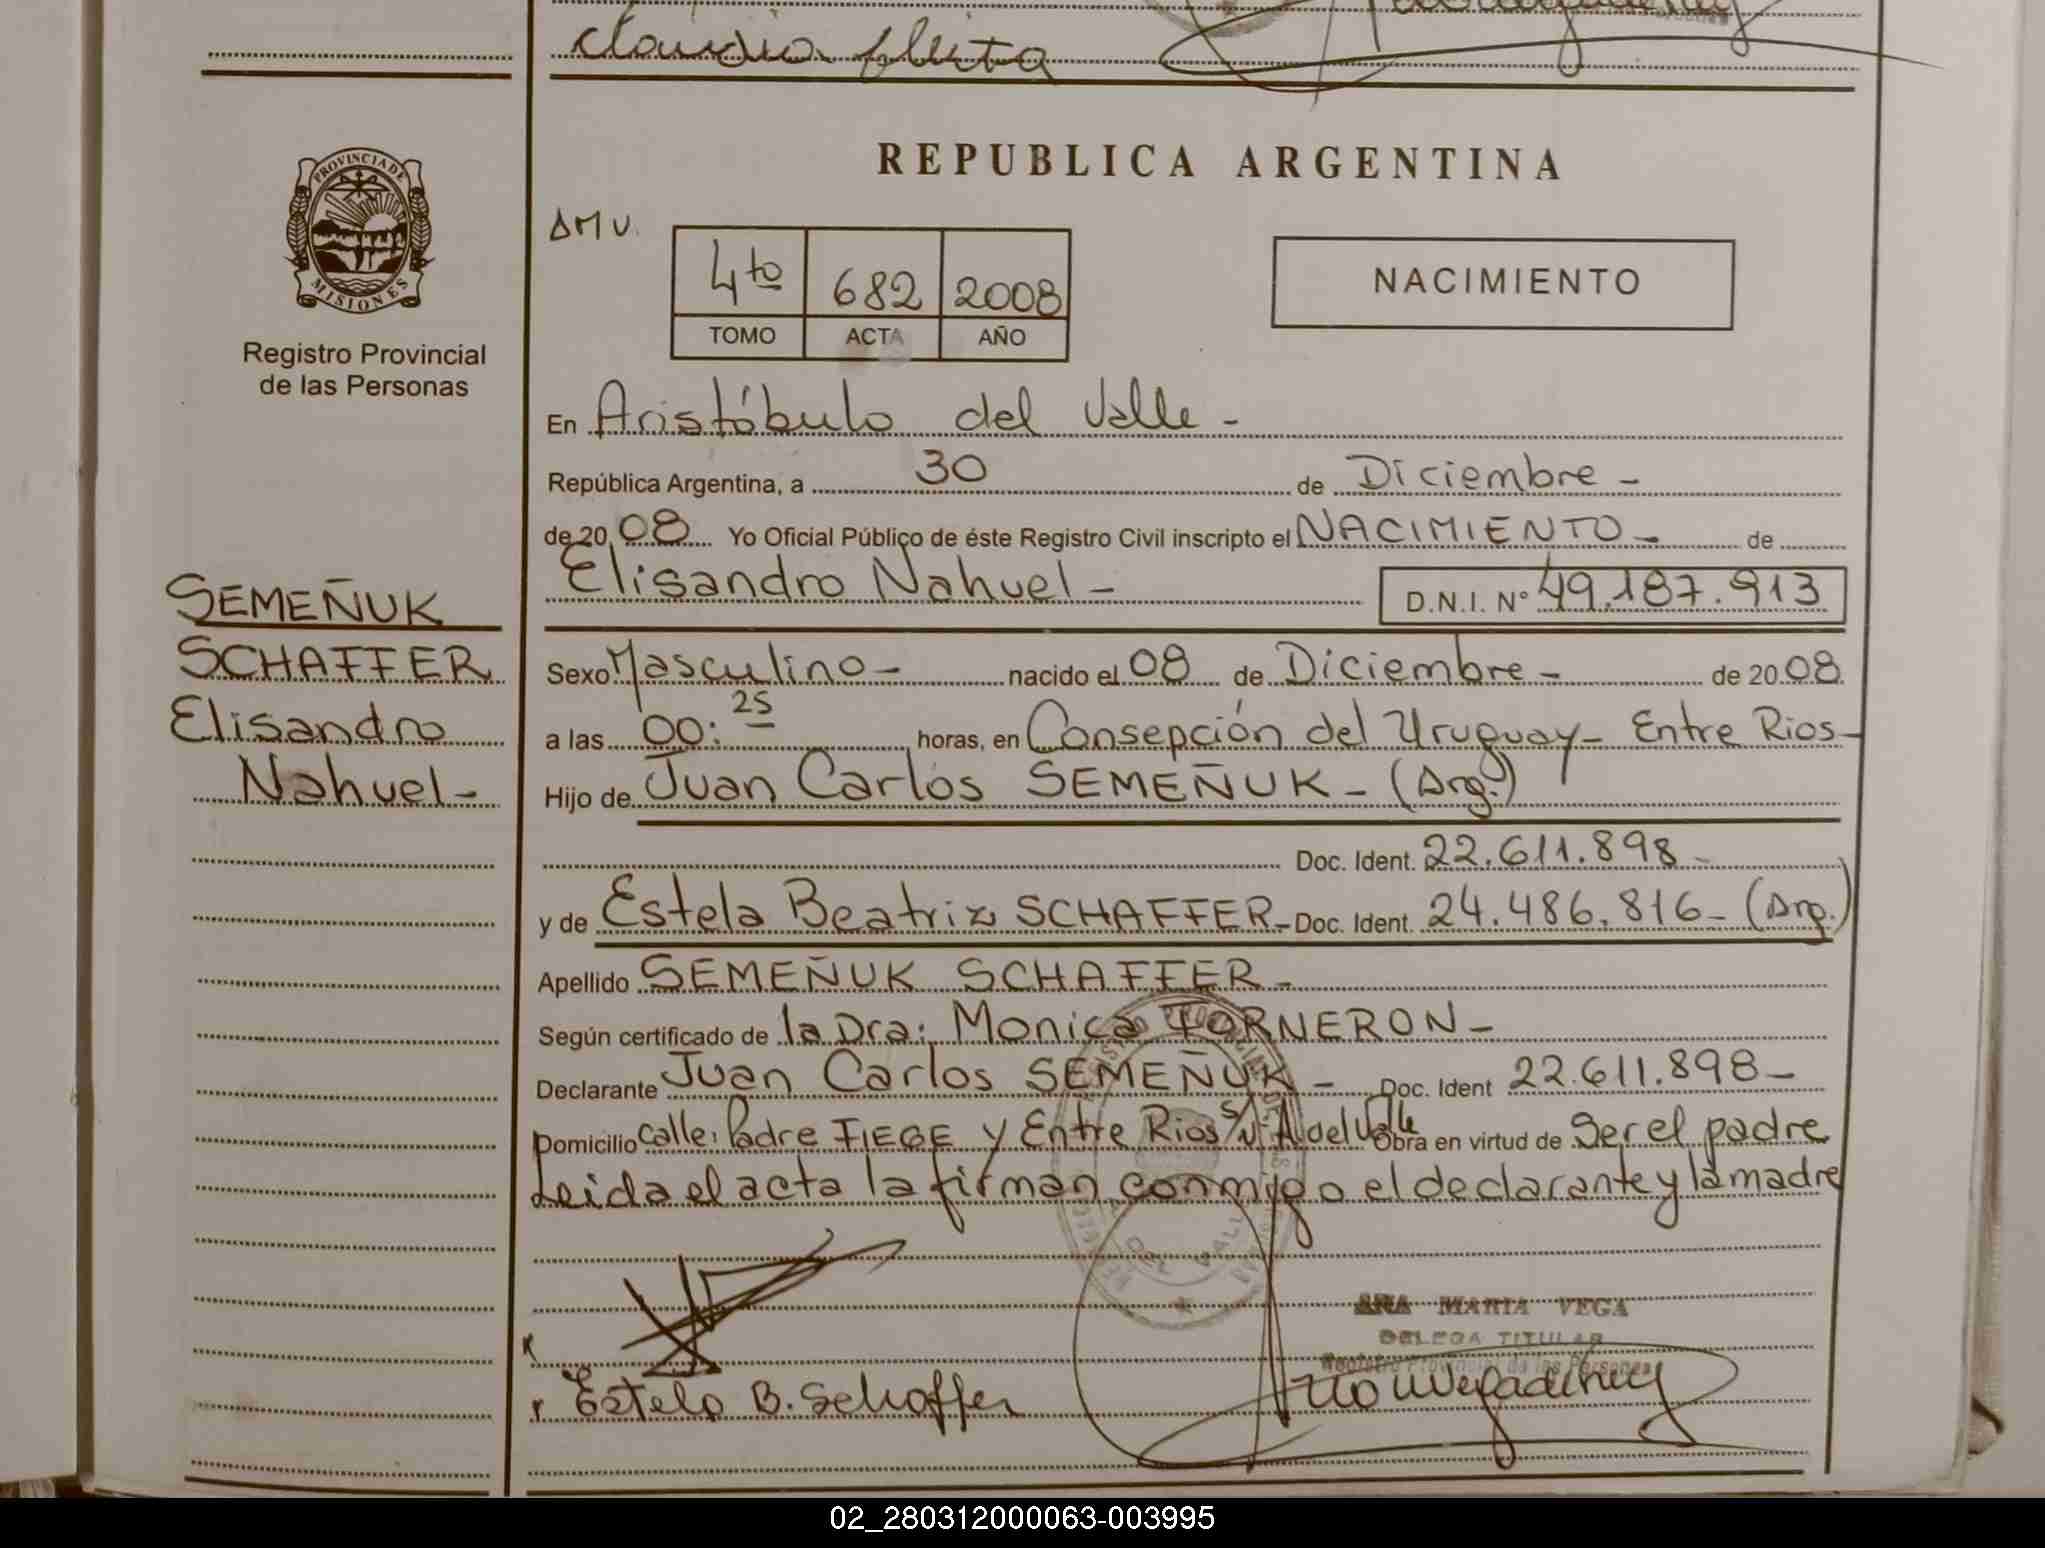 Claudio fleita
PROVINCIA DE
MISIONES
Registro Provincial
de las Personas
REPUBLICA ARGENTINA
AMV.
4to 682 2008
TOMO ACTA AÑO
NACIMIENTO
En Aristóbulo del Valle -
República Argentina, a 30 de Diciembre -
de 20 08 Yo Oficial Público de éste Registro Civil inscripto el NACIMIENTO - de
Elisandro Nahuel - D.N.I. Nº 49.187.913
SEMEÑUK
SCHAFFER
Elisandro
Nahuel -
Sexo Masculino - nacido el 08 de Diciembre - de 20 08
a las 00:25 horas, en Consepción del Uruguay - Entre Rios -
Hijo de Juan Carlos SEMEÑUK - (Arg.)
Doc. Ident. 22.611.898 -
y de Estela Beatriz SCHAFFER - Doc. Ident. 24.486.816 - (Arg.)
Apellido SEMEÑUK SCHAFFER -
Según certificado de la Dra: Monica FORNERON -
Declarante Juan Carlos SEMEÑUK - Doc. Ident 22.611.898 -
Domicilio calle: Padre FIEGE y Entre Rios s/n. A. del Valle Obra en virtud de Ser el padre
Leida el acta la firman conmigo el declarante y la madre
DEL VALLE
ANA MARIA VEGA
DELEGA TITULAR
Registro Provincial de las Personas
Estela B. Schaffer
02_280312000063-003995